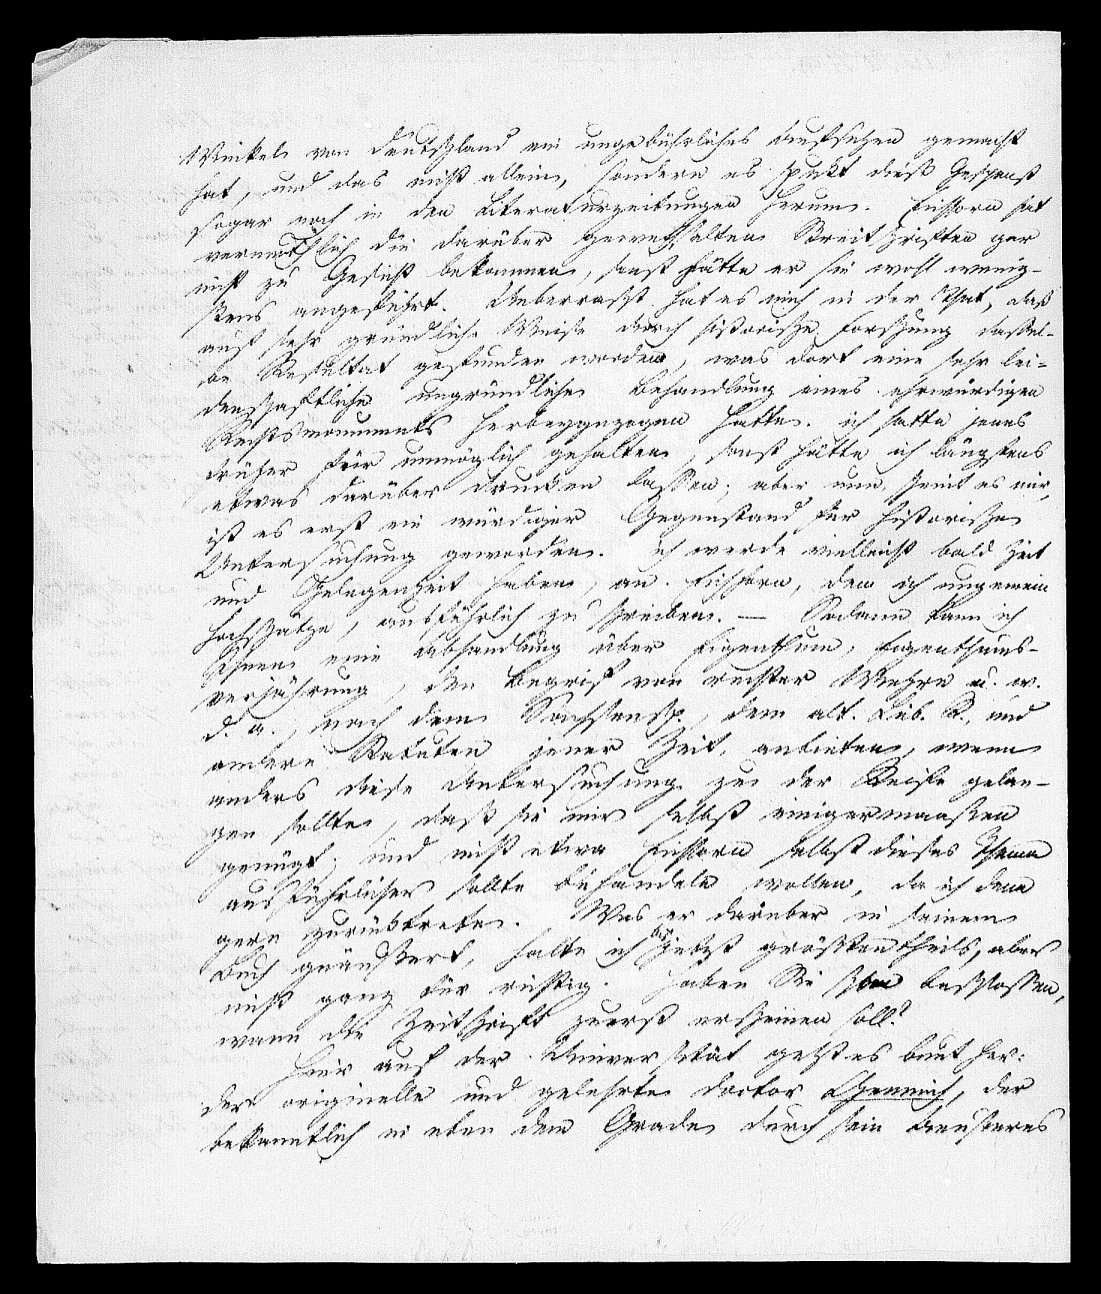 Winkel von Deutschland ein ungebührliches Aufsehen gemacht
hat, und das nicht allein, sondern es spukt dieß Gespenst
sogar noch in den Literaturzeitungen herum. Eichhorn hat
vermuthlich die darüber gewechselten Streitschriften gar
nicht zu Gesicht bekommen, sonst hätte er sie wohl wenig-
stens angeführt. Ueberrascht hat es mich in der That, daß
auf sehr gründliche Weise durch historische Forschung dassel-
be Resultat gefunden worden, was dort eine sehr lei-
denschaftliche ungründliche Behandlung eines ehrwürdigen
Rechtsmonuments herbeygezogen hatte. ich hatte jenes
früher für unmöglich gehalten, sonst hätte ich längstens
etwas darüber drucken lassen; aber nun, scheint es mir,
ist es erst ein würdiger Gegenstand für historische
Untersuchung geworden. ich werde vielleicht bald Zeit
und Gelegenheit haben, an Eichhorn, den ich ungemein
hochschätze, ausführlich zu schreiben. — Sodann kann ich
Ihnen eine Abhandlung über Eigenthum, Eigenthums-
verjährung, den Begrif von rechter Wehre u. w.
d. a., nach dem Sachsensp., dem alt. Lüb. R. und
andern Statuten jener Zeit, anbieten, wenn
anders diese Untersuchung zu der Reife gelan-
gen sollte, daß sie mir selbst einigermaaßen
genügt, und nicht etwa Eichhorn selbst dieses Thema
ausführlicher sollte behandeln wollen, da ich denn
gern zurücktrete. Was er darüber in seinem
Buch geäussert, halte ich bis jetzt größtentheils, aber
nicht ganz für richtig. Haben Sie schon beschlossen,
wann die Zeitschrift zuerst erscheinen soll?
Hier auf der Universität geht es bunt her:
der originelle und gelehrte Doctor, der
bekanntlich in eben dem Grade durch sein Aeusseres